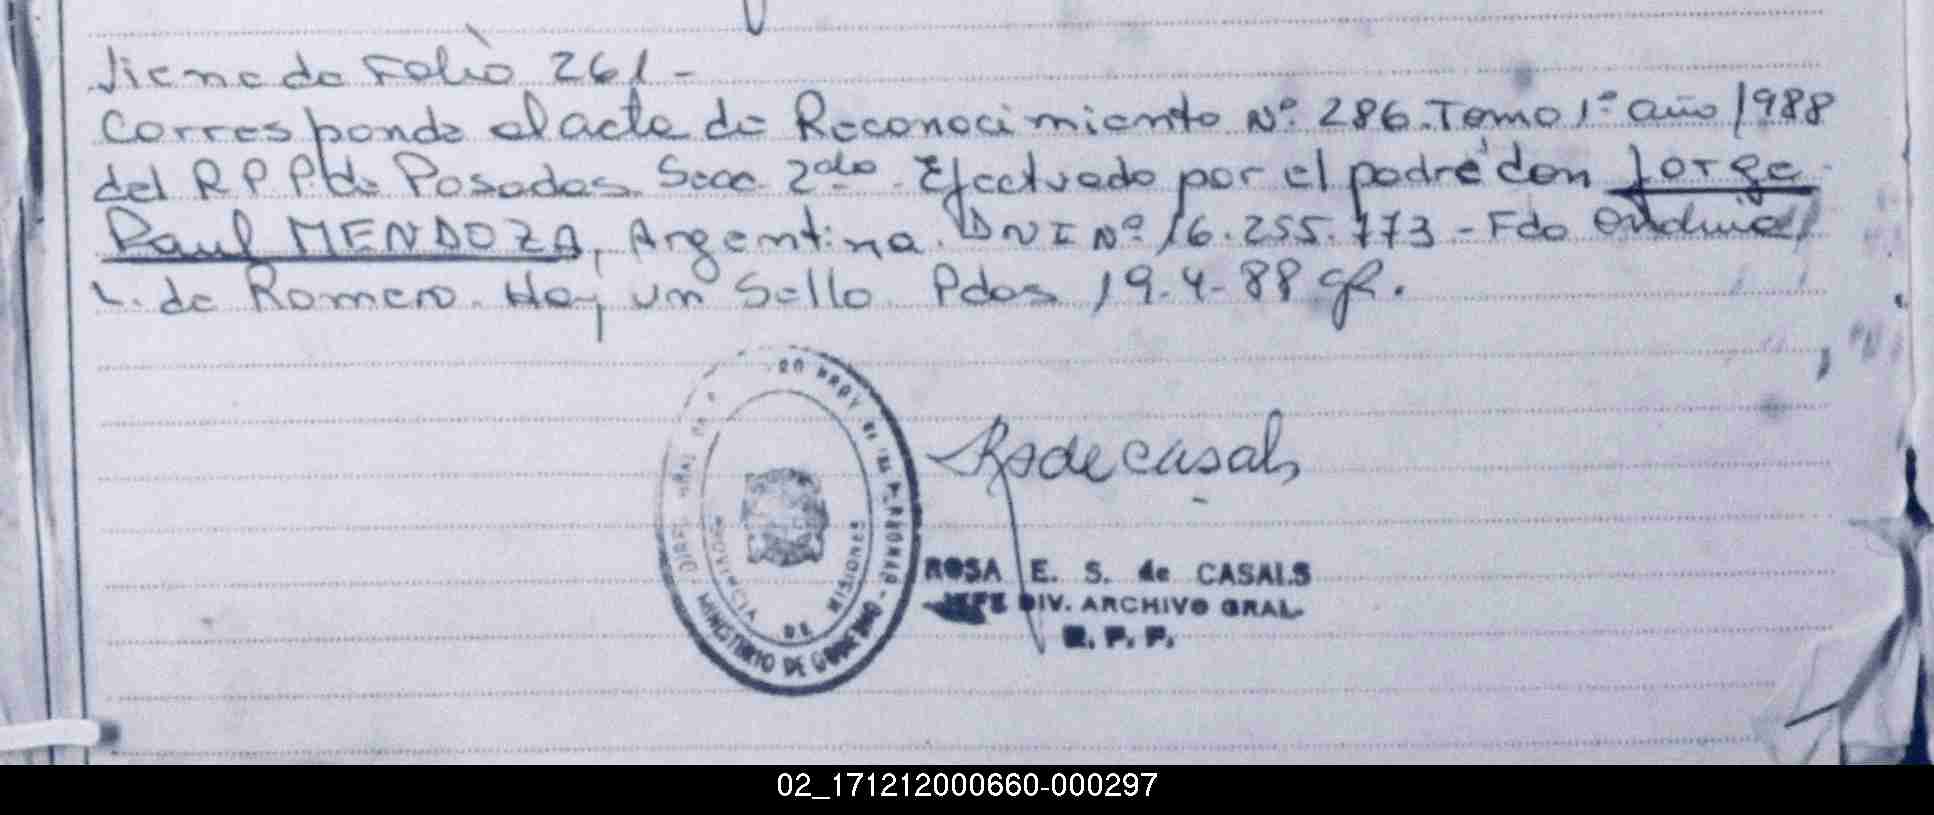 Viene de Folio 261 -
Corresponde al acta de Reconocimiento Nº 286. Tomo 1º año 1988
del R P P. de Posadas. Secc. 2da. Efectuado por el padre don Jorge
Raul MENDOZA, Argentina. DNI Nº 16.255.773 - Fdo
L. de Romero. Hay un Sello. Pdas 19-4-88 gR.
R S de Casals
PROVINCIA DE MISIONES
MINISTERIO DE GOBIERNO
ROSA E. S. de CASALS
JEFE DIV. ARCHIVO GRAL.
R. P. P.
02_171212000660-000297